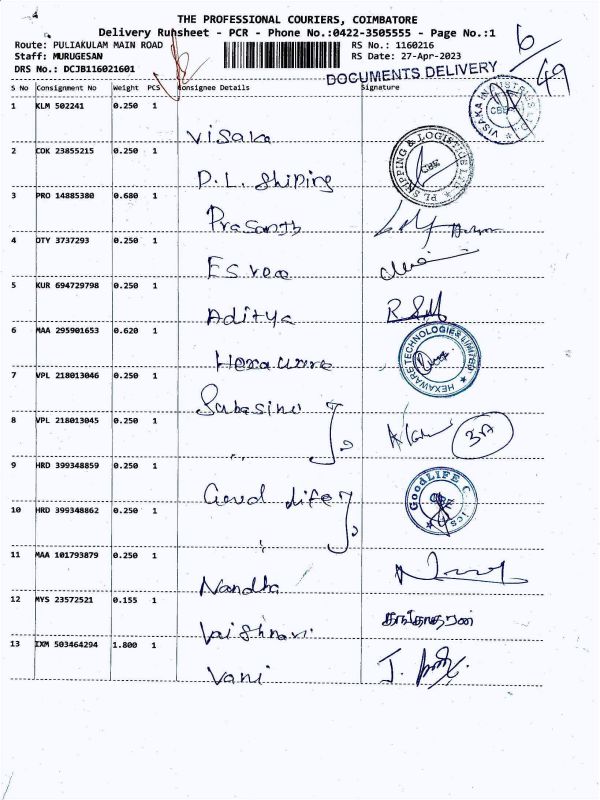 THE PROFESSIONAL COURIERS, COIMBATORE
Delivery Runsheet - PCR - Phone No.:0422-3505555 - Page No.:1
Route: PULIAKULAM MAIN ROAD RS No.: 1160216
Staff: MURUGESAN RS Date: 27-Apr-2023
DRS No.: DCJB116021601
DOCUMENTS DELIVERY
6/49
S No Consignment No Weight PCS Consignee Details Signature
1 KLM 502241 0.250 1
Visaka
VISAKA INDUSTRIES LTD CBE
2 COK 23855215 0.250 1
D.L. Shiping
PL SHIPPING & LOGISTICS LTD CBE
3 PRO 14885380 0.680 1
Prasanth
4 OTY 3737293 0.250 1
5 KUR 694729798 0.250 1
Aditya
6 MAA 295901653 0.620 1
Hexaware
HEXAWARE TECHNOLOGIES LIMITED
7 VPL 218013046 0.250 1
8 VPL 218013045 0.250 1
9 HRD 399348859 0.250 1
Good Life
GoodLIFE CBE
10 HRD 399348862 0.250 1
11 MAA 101793879 0.250 1
Nandha
12 MYS 23572521 0.155 1
Vaishnavi
13 IXM 503464294 1.800 1
Vani